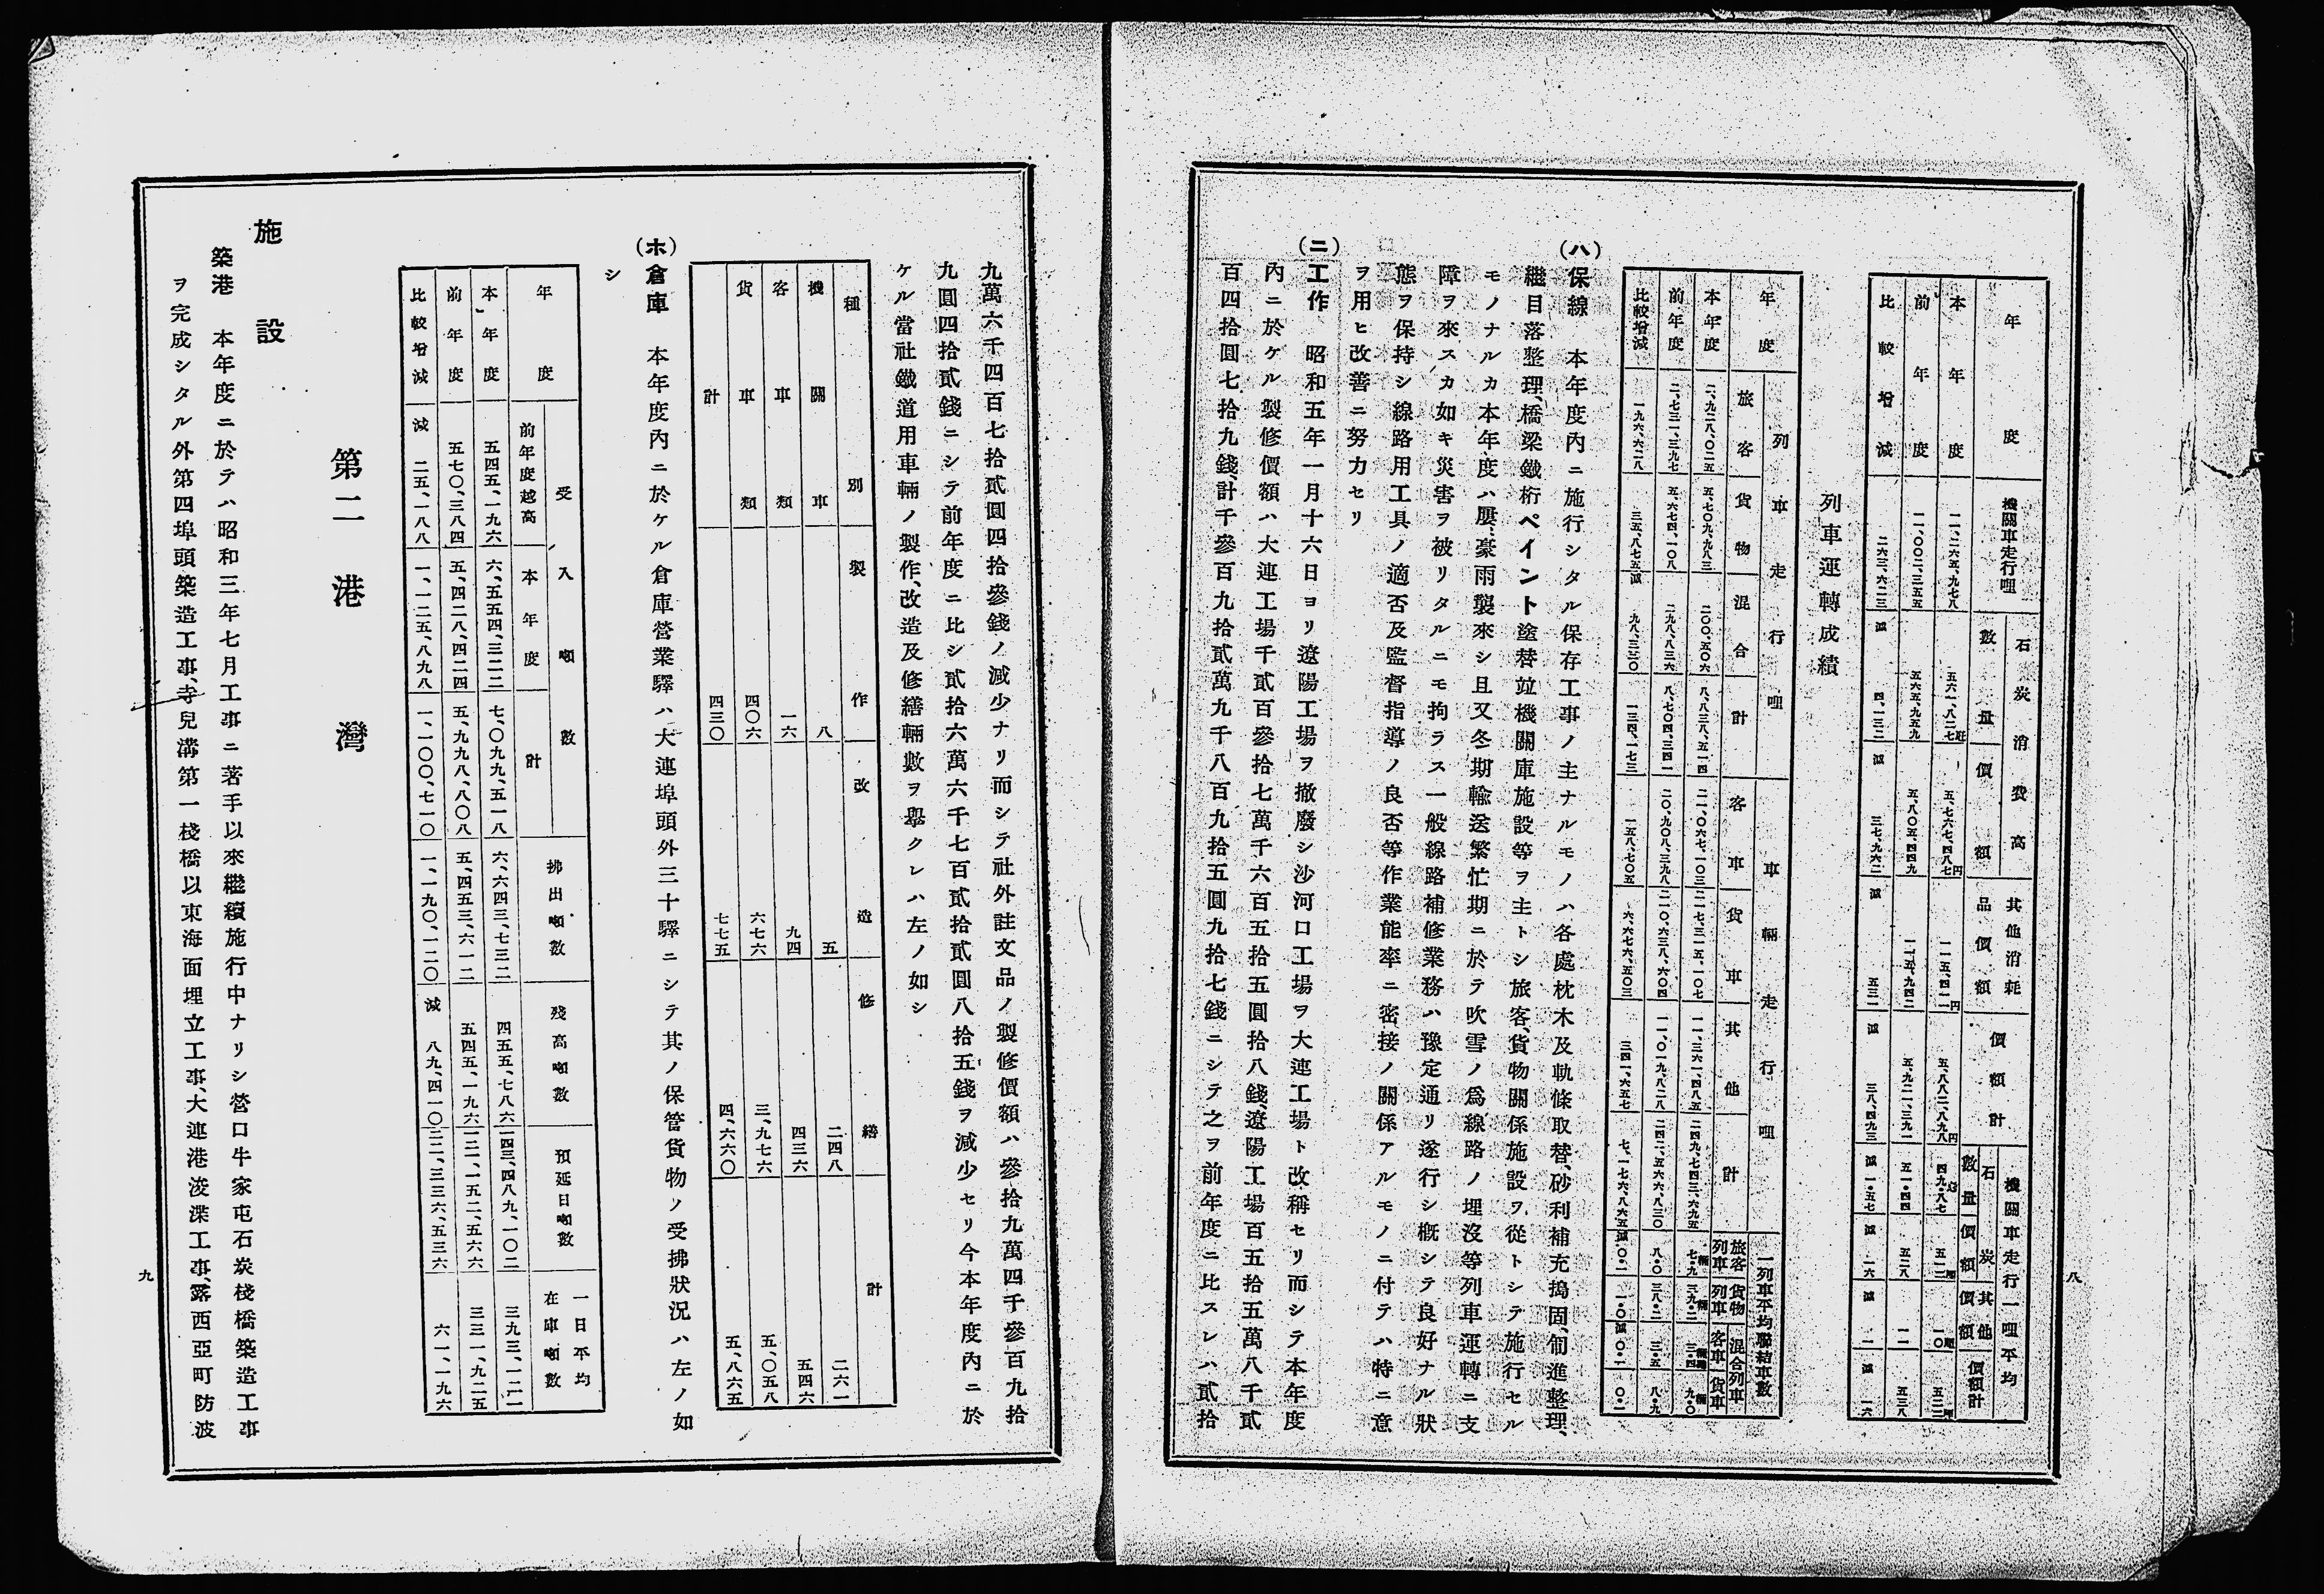 年度
機關車走行哩
石炭消費高
數量
價額
其他消耗品價額
價額計
機關車走行一哩平均
石炭
數量
價額
其他價額
價額計
本年度 一一、二六五、九七八 五六一、八二七瓲 五、七六七、四八七円 一一五、四一一円 五、八八二、八九八円 四九・八七 五一二 一〇 五二二
前年度 一一、〇〇二、三五五 五六五、九五九 五、八〇五、四四九 一一五、九四二 五、九二一、三九一 五一・四四 五二八 一一 五三八
比較增減 二六三、六二三 減 四、一三二 減 三七、九六二 減 五三一 減 三八、四九三 減 一・五七 減 一六 減 一 減 一六
列車運轉成績
年度
列車走行哩
旅客
貨物
混合
計
車輛走行哩
客車
貨車
其他
計
一列車平均聯結車數
旅客列車
貨物列車
混合列車
客車
貨車
本年度 二、九二八、〇二五 五、七〇九、九八三 二〇〇、五〇六 八、八三八、五一四 二一、〇六七、一〇三 二一七、三一五、一〇七 一一、三六一、四八五 二四九、七四三、六九五 七・九 三九・二 三・四 九・〇
前年度 二、七三一、三九七 五、六七四、一〇八 二九八、八三六 八、七〇四、三四一 二〇、九〇八、三九八 二一〇、六三八、六〇四 一一、〇一九、八二八 二四二、五六六、八三〇 八・〇 三八・二 三・五 八・九
比較增減 一九六、六二八 三五、八七五 減 九八、三三〇 一三四、一七三 一五八、七〇五 六、六七六、五〇三 三四一、六五七 七、一七六、八六五 減〇・一 一・〇 減〇・一 〇・一
(ハ)保線 本年度內ニ施行シタル保存工事ノ主ナルモノハ各處枕木及軌條取替、砂利補充搗固、匍進整理、
繼目落整理、橋梁鐵桁ペイント塗替竝機關庫施設等ヲ主トシ旅客、貨物關係施設ヲ從トシテ施行セル
モノナルカ本年度ハ屢〻豪雨襲來シ且又冬期輸送繁忙期ニ於テ吹雪ノ爲線路ノ埋沒等列車運轉ニ支
障ヲ來スカ如キ災害ヲ被リタルニモ拘ラス一般線路補修業務ハ豫定通リ遂行シ概シテ良好ナル狀
態ヲ保持シ線路用工具ノ適否及監督指導ノ良否等作業能率ニ密接ノ關係アルモノニ付テハ特ニ意
ヲ用ヒ改善ニ努力セリ
(ニ)工作 昭和五年一月十六日ヨリ遼陽工場ヲ撤廢シ沙河口工場ヲ大連工場ト改稱セリ而シテ本年度
內ニ於ケル製修價額ハ大連工場千貳百參拾七萬千六百五拾五圓拾八錢、遼陽工場百五拾五萬八千貳
百四拾圓七拾九錢、計千參百九拾貳萬九千八百九拾五圓九拾七錢ニシテ之ヲ前年度ニ比スレハ貳拾
八
九萬六千四百七拾貳圓四拾參錢ノ減少ナリ而シテ社外註文品ノ製修價額ハ參拾九萬四千參百九拾
九圓四拾貳錢ニシテ前年度ニ比シ貳拾六萬六千七百貳拾貳圓八拾五錢ヲ減少セリ今本年度內ニ於
ケル當社鐵道用車輛ノ製作、改造及修繕輛數ヲ擧クレハ左ノ如シ
種別 製作 改造 修繕 計
機關車 八 五 二四八 二六一
客車類 一六 九四 四三六 五四六
貨車類 四〇六 六七六 三、九七六 五、〇五八
計 四三〇 七七五 四、六六〇 五、八六五
(ホ)倉庫 本年度內ニ於ケル倉庫營業驛ハ大連埠頭外三十驛ニシテ其ノ保管貨物ノ受拂狀況ハ左ノ如
シ
年度
受入噸數
前年度越高
本年度
計
拂出噸數
殘高噸數
預延日噸數
一日平均在庫噸數
本年度 五四五、一九六 六、五五四、三二二 七、〇九九、五一八 六、六四三、七三二 四五五、七八六 一四三、四八九、一〇二 三九三、一二一
前年度 五七〇、三八四 五、四二八、四二四 五、九九八、八〇八 五、四五三、六一二 五四五、一九六 一二一、一五二、五六六 三三一、九二五
比較增減 減 二五、一八八 一、一二五、八九八 一、一〇〇、七一〇 一、一九〇、一二〇 減 八九、四一〇 二二、三三六、五三六 六一、一九六
第二 港灣
施設
築港 本年度ニ於テハ昭和三年七月工事ニ著手以來繼續施行中ナリシ營口牛家屯石炭棧橋築造工事
ヲ完成シタル外第四埠頭築造工事、寺兒溝第一棧橋以東海面埋立工事、大連港浚渫工事、露西亞町防波
九